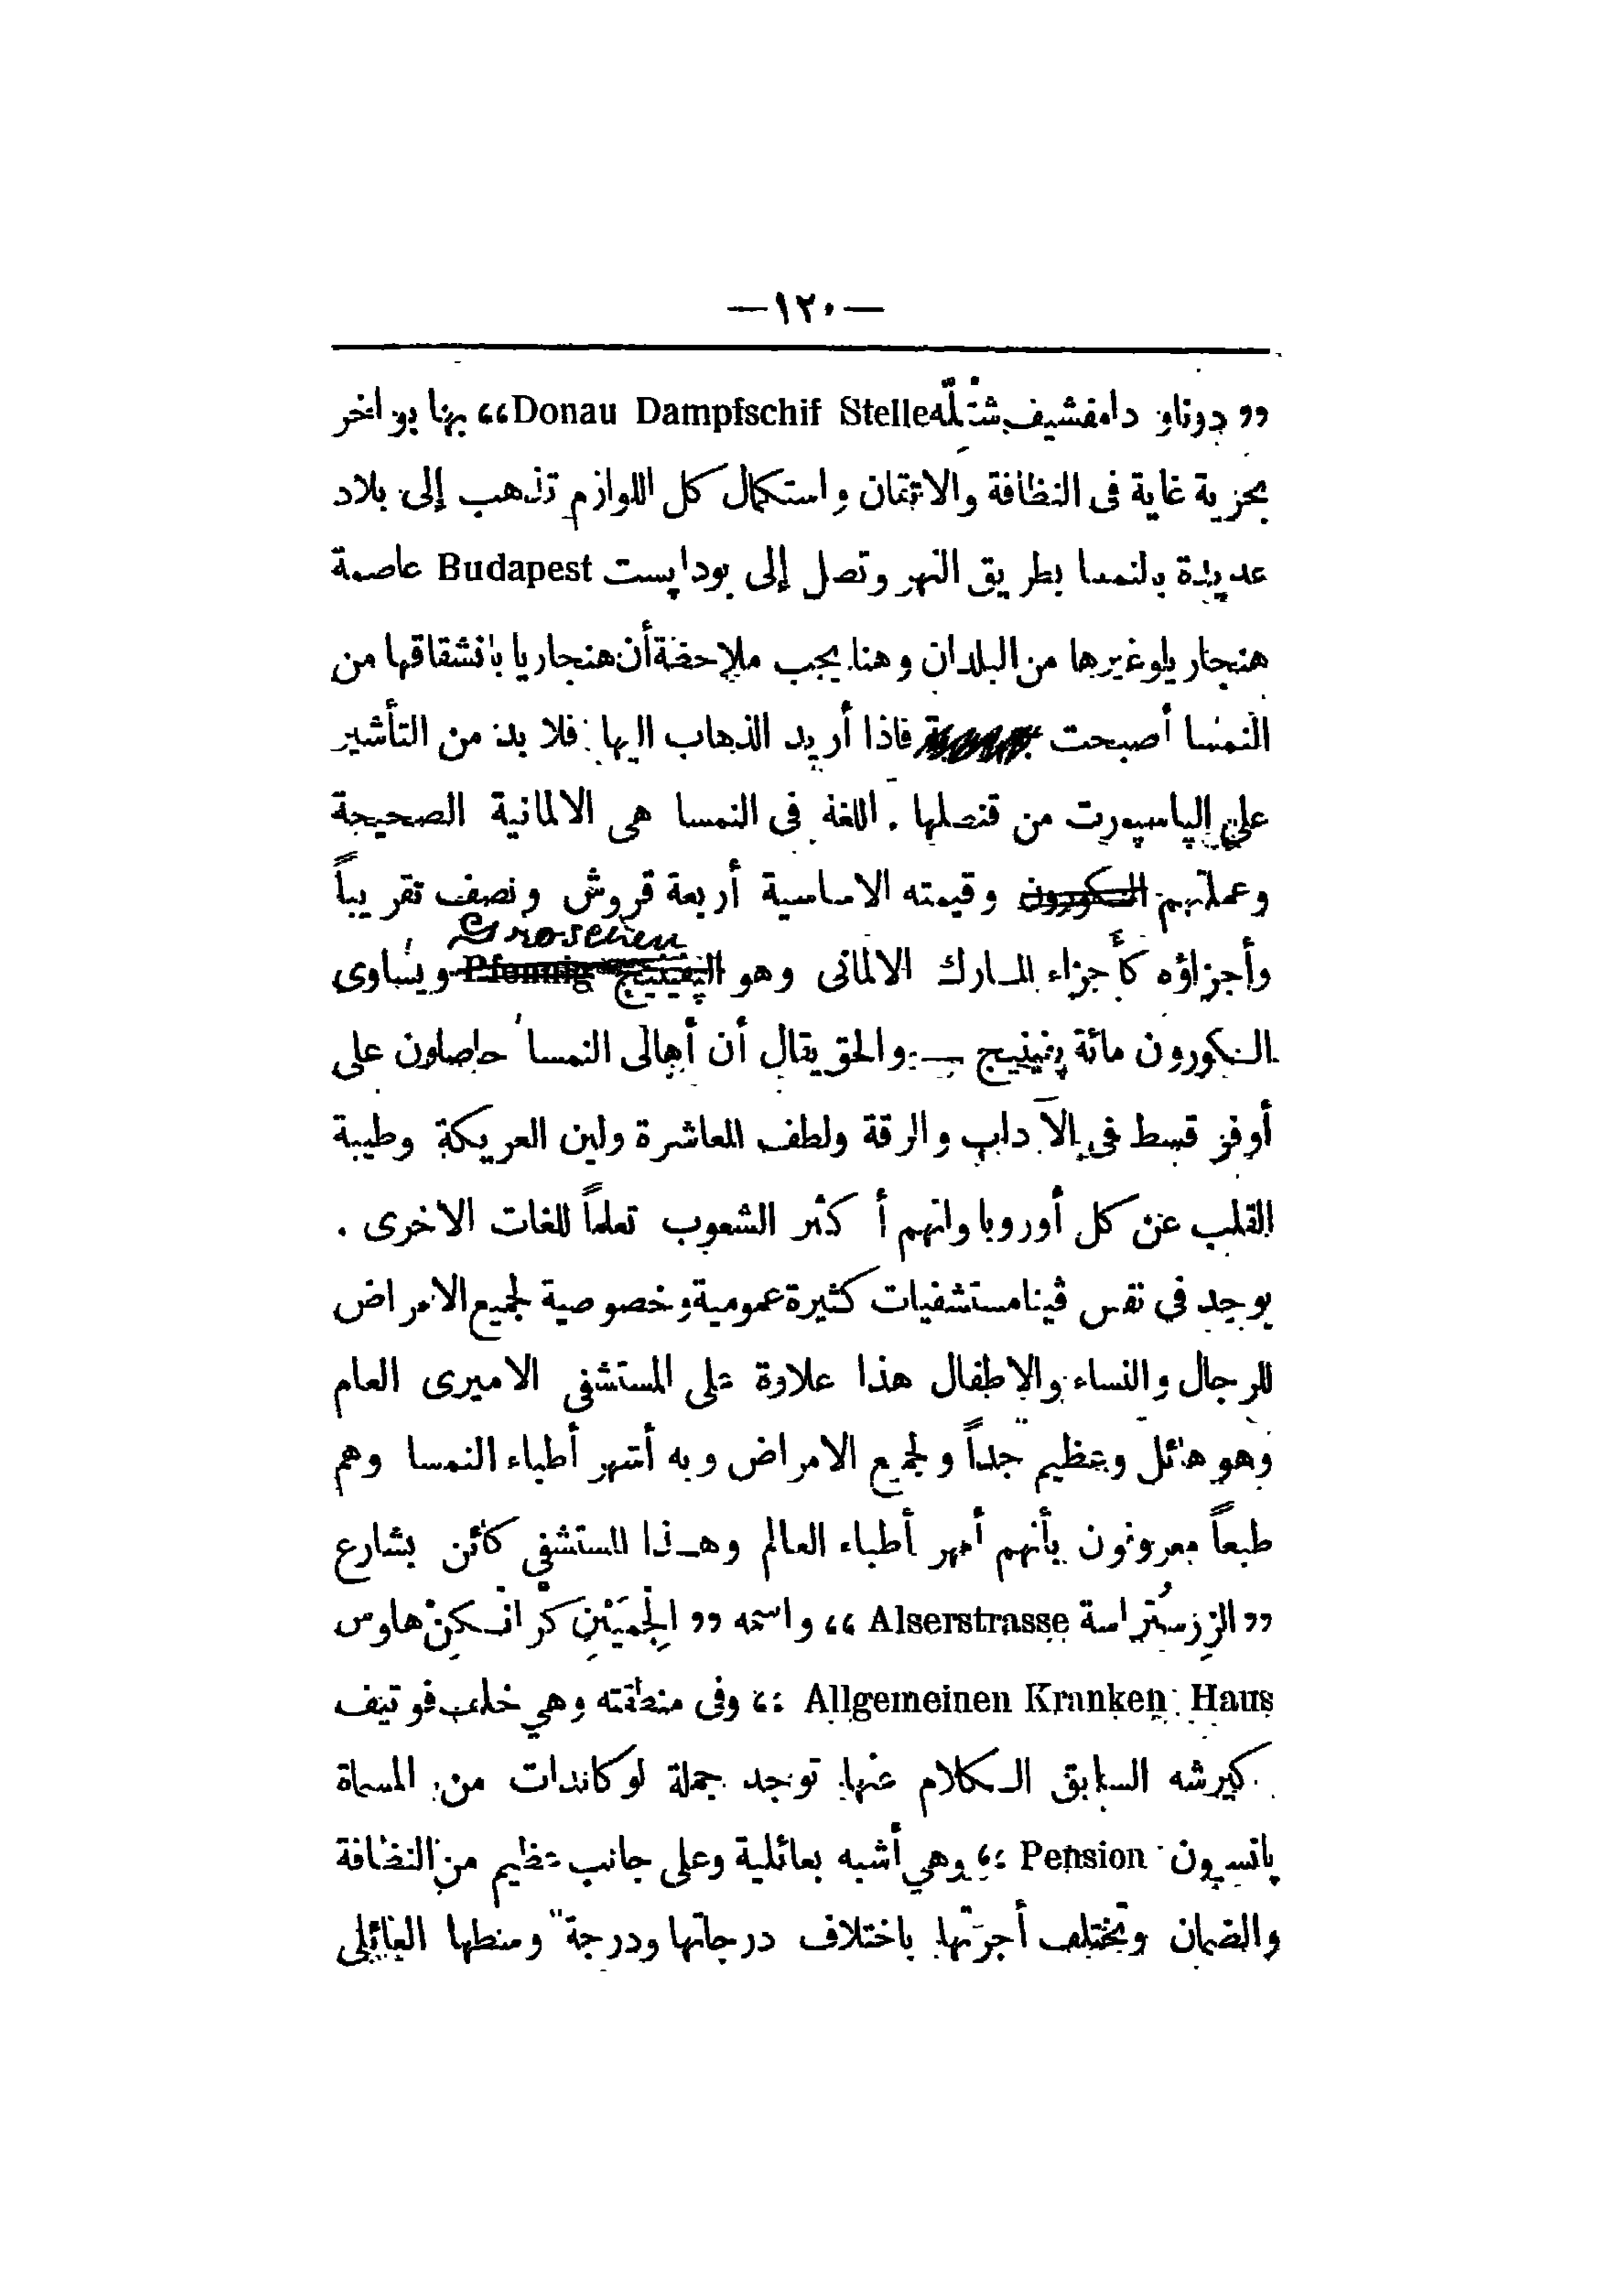 —١٢٠—
,, دوناو دامفشيف شتلّه Donau Dampfschif Stelle ،، بها بواخر
بحرية غاية فى النظافة والاتقان واستكمال كل اللوازم تذهب إلى بلاد
عديدة بالنمسا بطريق النهر وتصل إلى بوداپست Budapest عاصمة
هنجاريا وغيرها من البلدان وهنا يجب ملاحظة أن هنجاريا بانشقاقها من
النمسا أصبحت فاذا أريد الذهاب اليها فلا بد من التأشير
على الپاسپورت من قنصلها . اللغة فى النمسا هى الالمانية الصحيحة
وعملتهم الكورون وقيمته الاساسية أربعة قروش ونصف تقريباً
Groschen
وأجزاؤه كأجزاء المارك الالمانى وهو الپفينيج Pfennig ويساوى
الكورون مائة پفينيج — والحق يقال أن أهالى النمسا حاصلون على
أوفر قسط فى الآداب والرقة ولطف المعاشرة ولين العريكة وطيبة
القلب عن كل أوروبا وانهم أكثر الشعوب تعلماً للغات الاخرى .
يوجد فى نفس ڤينا مستشفيات كثيرة عمومية وخصوصية لجميع الامراض
للرجال والنساء والاطفال هذا علاوة على المستشفى الاميرى العام
وهو هائل وعظيم جداً ولجميع الامراض وبه أشهر أطباء النمسا وهم
طبعاً معروفون بأنهم أمهر أطباء العالم وهذا المستشفى كائن بشارع
,, الزرسُتراسة Alserstrasse ،، واسمه ,, الِجميَنْن كرانكنْ هاوس
Allgemeinen Kranken Haus ،، وفى منطقته وهي خلف فوتيف
كيرشه السابق الكلام عنها توجد جملة لوكاندات من المسماة
پانسيون Pension ،، وهي أشبه بعائلية وعلى جانب عظيم من النظافة
والضمان وتختلف أجرتها باختلاف درجاتها ودرجة وسطها العائلى